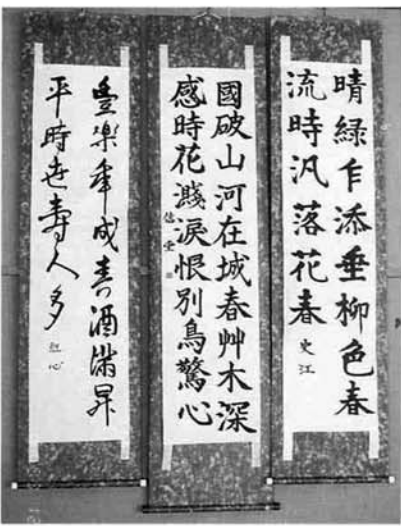 晴綠乍添垂柳色春
流時汎落花春
史江
國破山河在城春艸木深
感時花濺淚恨別鳥驚心
信堂
豐樂年成春酒滿昇
平時世壽人多
紅心